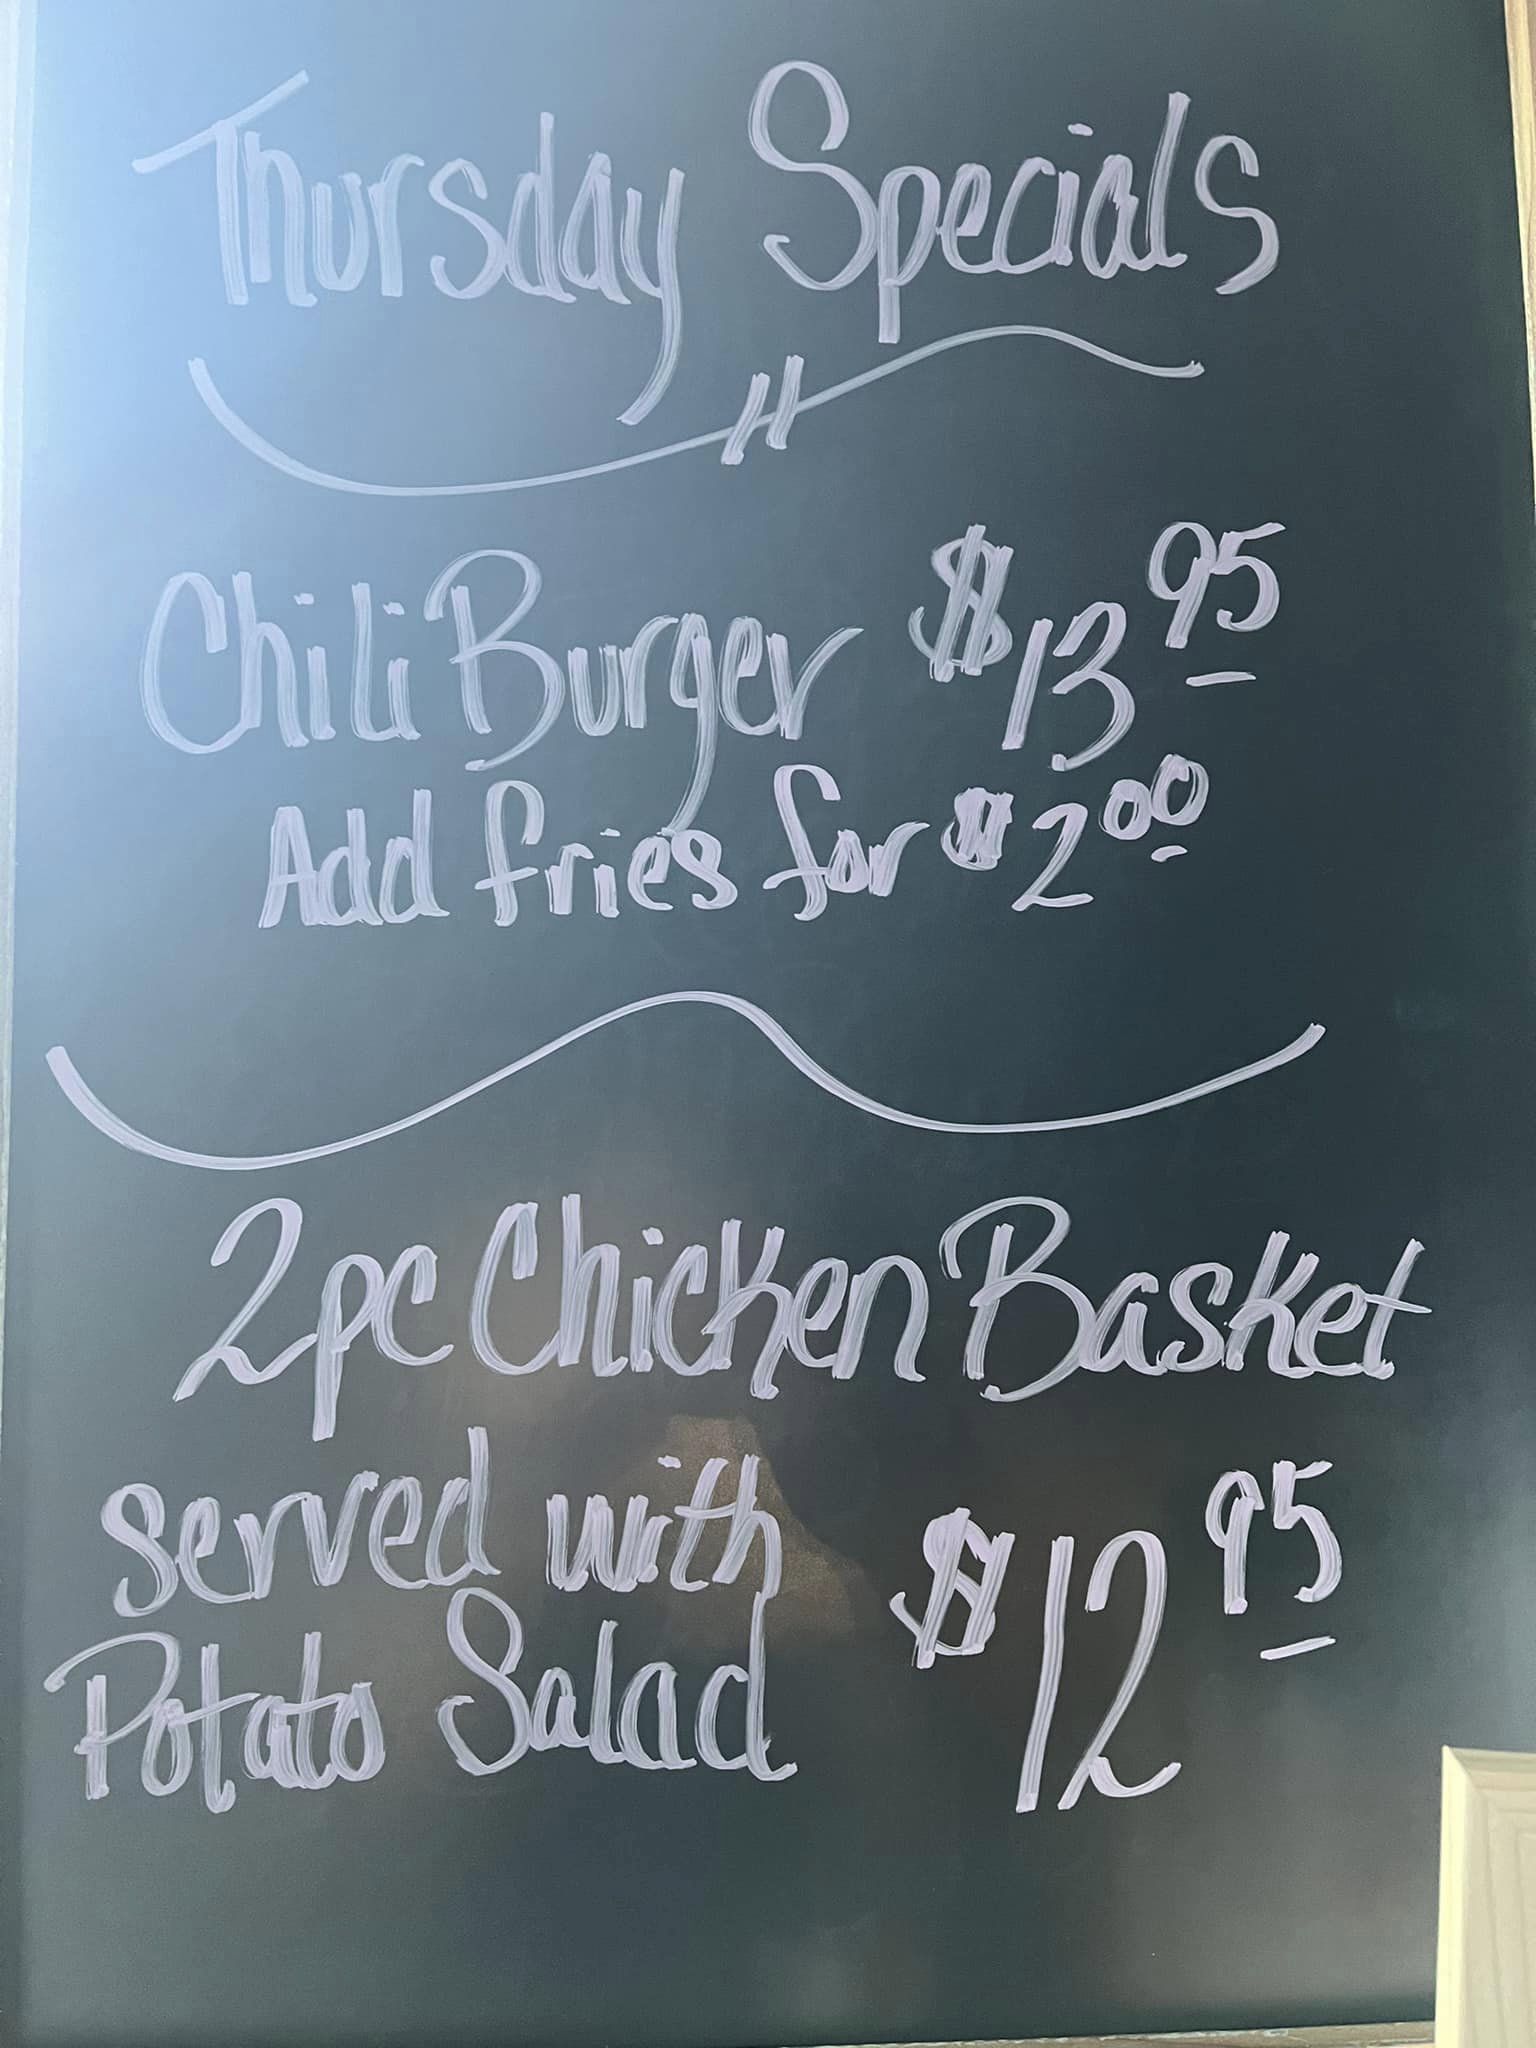 Thursday Specials
Chili Burger $13.95
Add fries for $2.00
2pc Chicken Basket
served with
Potato Salad $12.95